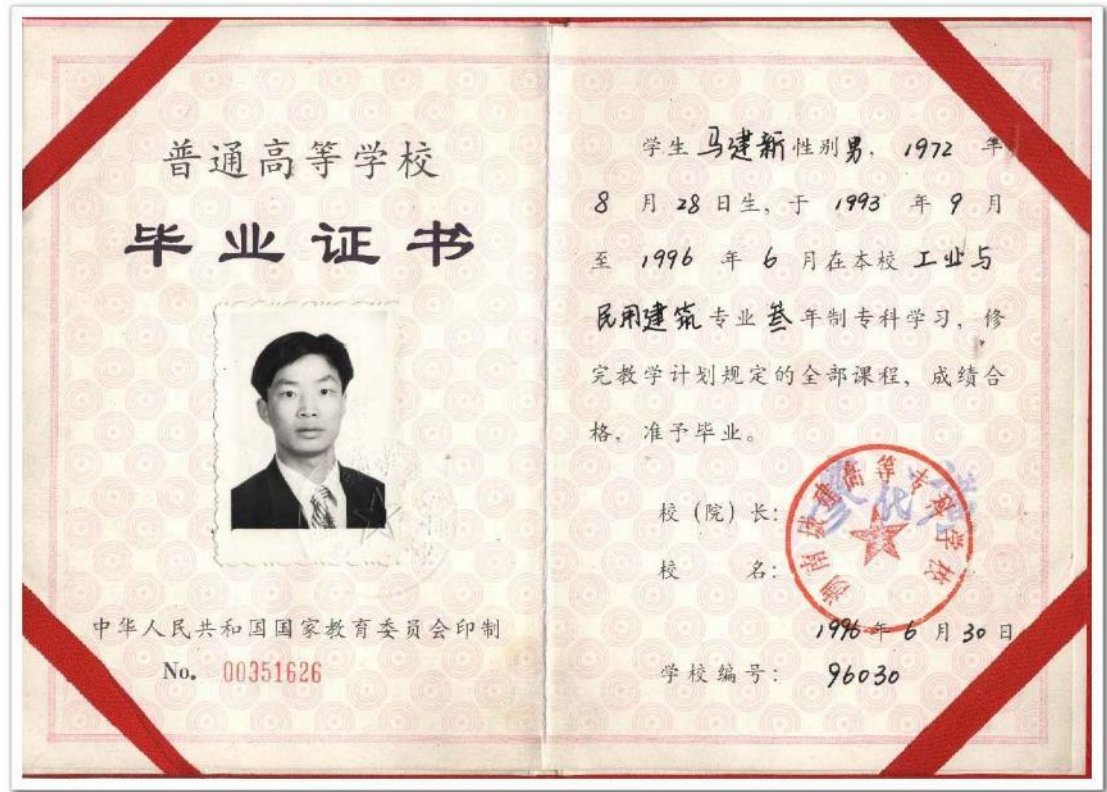 普通高等学校
毕业证书
中华人民共和国国家教育委员会印制
No. 00351626
学生马建新性别男，1972 年
8 月 28 日生，于 1993 年 9 月
至 1996 年 6 月在本校工业与
民用建筑专业叁年制专科学习，修
完教学计划规定的全部课程，成绩合
格，准予毕业。
校（院）长：
校 名：
湖南城建高等专科学校
1996 年 6 月 30 日
学校编号： 96030